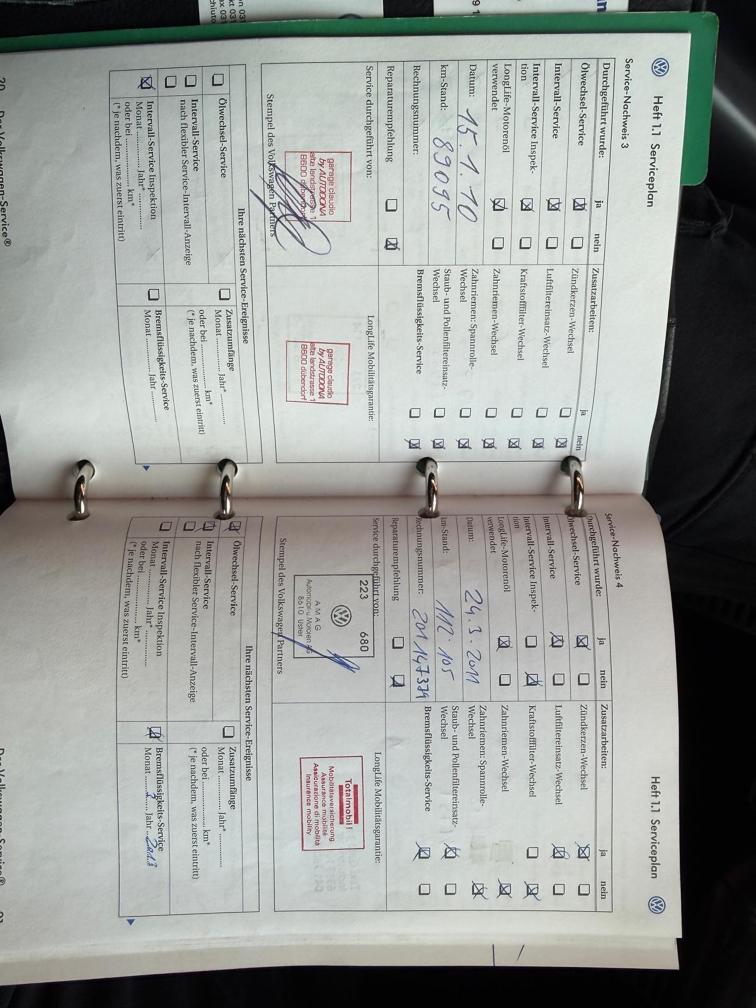 Heft 1.1 Serviceplan
Service-Nachweis 3
Durchgeführt wurde: ja nein
Ölwechsel-Service
Intervall-Service
Intervall-Service Inspek-
tion
LongLife-Motorenöl
verwendet
Datum: 15.1.10
km-Stand: 89095
Rechnungsnummer:
Reparaturempfehlung
Zusatzarbeiten: ja nein
Zündkerzen-Wechsel
Luftfiltereinsatz-Wechsel
Kraftstofffilter-Wechsel
Zahnriemen-Wechsel
Zahnriemen: Spannrolle-
Wechsel
Staub- und Pollenfiltereinsatz-
Wechsel
Bremsflüssigkeits-Service
Service durchgeführt von:
garage claudio
by AUTODONA
alte landstrasse 1
8600 dübendorf
Stempel des Volkswagen Partners
LongLife Mobilitätsgarantie:
garage claudio
by AUTODONA
alte landstrasse 1
8600 dübendorf
Ihre nächsten Service-Ereignisse
Ölwechsel-Service
Intervall-Service
nach flexibler Service-Intervall-Anzeige
Intervall-Service Inspektion
Monat .......... Jahr* ..........
oder bei .......... km*
(* je nachdem, was zuerst eintritt)
Zusatzumfänge
Monat .......... Jahr* ..........
oder bei .......... km*
(* je nachdem, was zuerst eintritt)
Bremsflüssigkeits-Service
Monat .......... Jahr ..........
20 Der Volkswagen-Service®
Heft 1.1 Serviceplan
Service-Nachweis 4
Durchgeführt wurde: ja nein
Ölwechsel-Service
Intervall-Service
Intervall-Service Inspek-
tion
LongLife-Motorenöl
verwendet
Datum: 24.3.2011
km-Stand: 112.105
Rechnungsnummer:
Reparaturempfehlung
Zusatzarbeiten: ja nein
Zündkerzen-Wechsel
Luftfiltereinsatz-Wechsel
Kraftstofffilter-Wechsel
Zahnriemen-Wechsel
Zahnriemen: Spannrolle-
Wechsel
Staub- und Pollenfiltereinsatz-
Wechsel
Bremsflüssigkeits-Service
Service durchgeführt von:
223 680
AMAG
Automobil- u. Motoren AG
8610 Uster
Stempel des Volkswagen Partners
LongLife Mobilitätsgarantie:
Totalmobil!
Mobilitätsversicherung
Assurance mobilité
Assicurazione di mobilità
Insurance mobility
Ihre nächsten Service-Ereignisse
Ölwechsel-Service
Intervall-Service
nach flexibler Service-Intervall-Anzeige
Intervall-Service Inspektion
Monat .......... Jahr* ..........
oder bei .......... km*
(* je nachdem, was zuerst eintritt)
Zusatzumfänge
Monat .......... Jahr* ..........
oder bei .......... km*
(* je nachdem, was zuerst eintritt)
Bremsflüssigkeits-Service
Monat .......... Jahr 2013